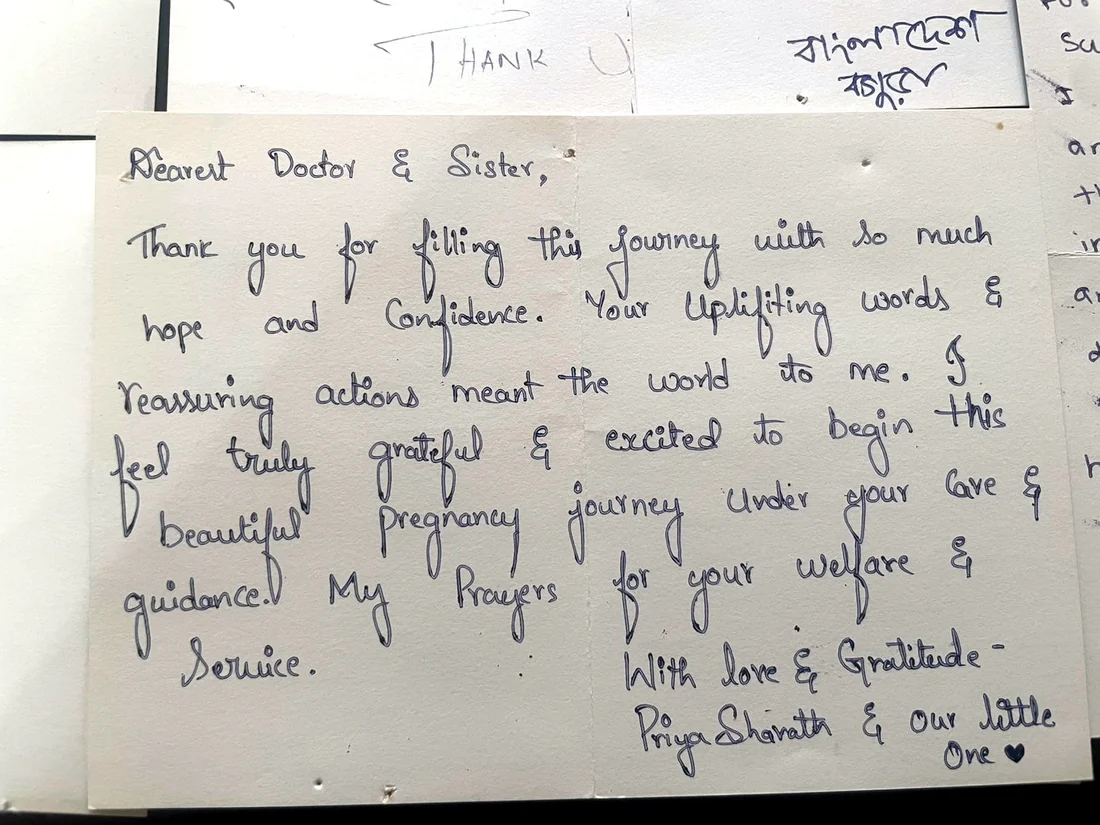 THANK U
বাংলাদেশ
Dearest Doctor & Sister,
Thank you for filling this journey with so much
hope and Confidence. Your Uplifiting words &
reassuring actions meant the world to me. I
feel truly grateful & excited to begin this
beautiful pregnancy journey under your Care &
guidance. My Prayers for your welfare &
Service.
With love & Gratitude -
Priya Sharath & our little
One ♥